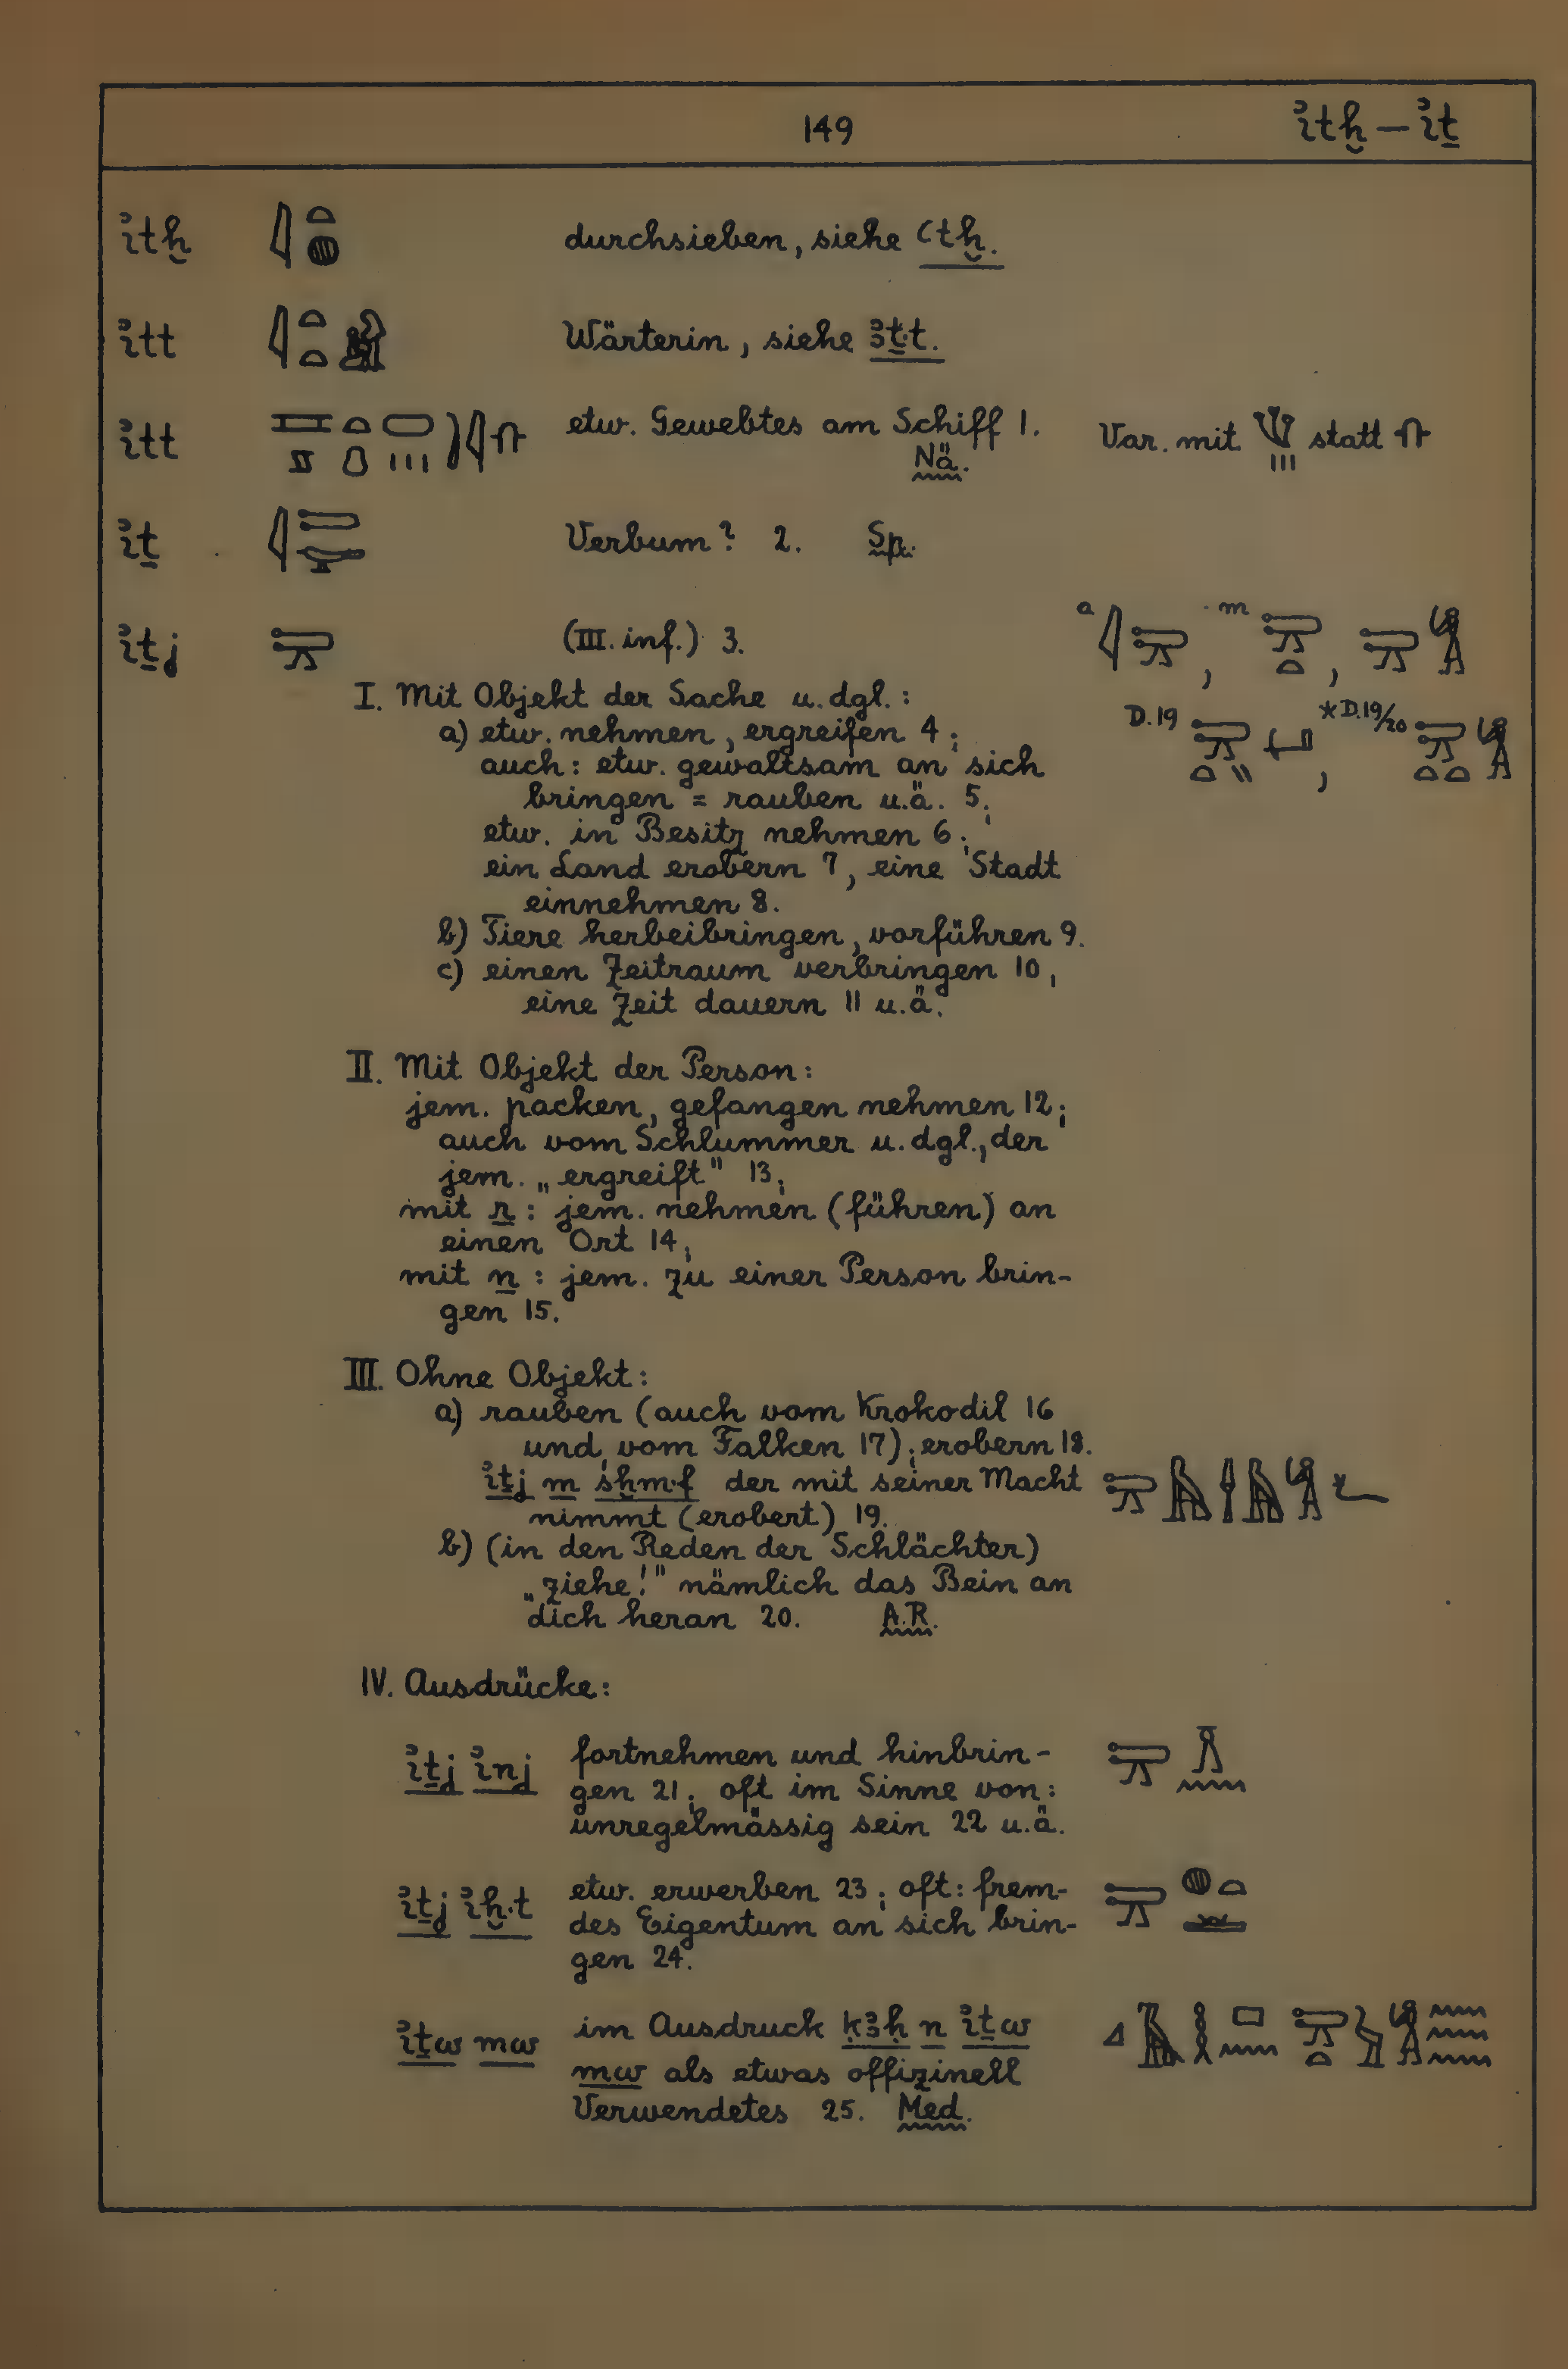 149 ı͗tḫ – ı͗ṯ
ı͗tḫ durchsieben, siehe ꜥtḫ.
ı͗tt Wärterin, siehe ꜣṯ.t.
ı͗tt etw. Gewebtes am Schiff 1. Var. mit statt
Nä.
ı͗ṯ Verbum? 2. Sp.
ı͗ṯj (III. inf.) 3. a , m ,
I. Mit Objekt der Sache u. dgl.:
D.19 , *D.19/20
a) etw. nehmen, ergreifen 4;
auch: etw. gewaltsam an sich
bringen = rauben u.ä. 5;
etw. in Besitz nehmen 6;
ein Land erobern 7, eine Stadt
einnehmen 8.
b) Tiere herbeibringen, vorführen 9.
c) einen Zeitraum verbringen 10,
eine Zeit dauern 11 u.ä.
II. Mit Objekt der Person:
jem. packen, gefangen nehmen 12;
auch vom Schlummer u. dgl., der
jem. „ergreift" 13;
mit r: jem. nehmen (führen) an
einen Ort 14;
mit n: jem. zu einer Person brin-
gen 15.
III. Ohne Objekt:
a) rauben (auch vom Krokodil 16
und vom Falken 17); erobern 18.
ı͗ṯj m śḫm.f der mit seiner Macht
nimmt (erobert) 19.
b) (in den Reden der Schlächter)
„ziehe!" nämlich das Bein an
dich heran 20. A.R.
IV. Ausdrücke:
ı͗ṯj ı͗nj fortnehmen und hinbrin-
gen 21; oft im Sinne von:
unregelmässig sein 22 u.ä.
ı͗ṯj ı͗ḫ.t etw. erwerben 23; oft: frem-
des Eigentum an sich brin-
gen 24.
ı͗ṯw mw im Ausdruck ḳꜣḥ n ı͗ṯw
mw als etwas offizinell
Verwendetes 25. Med.